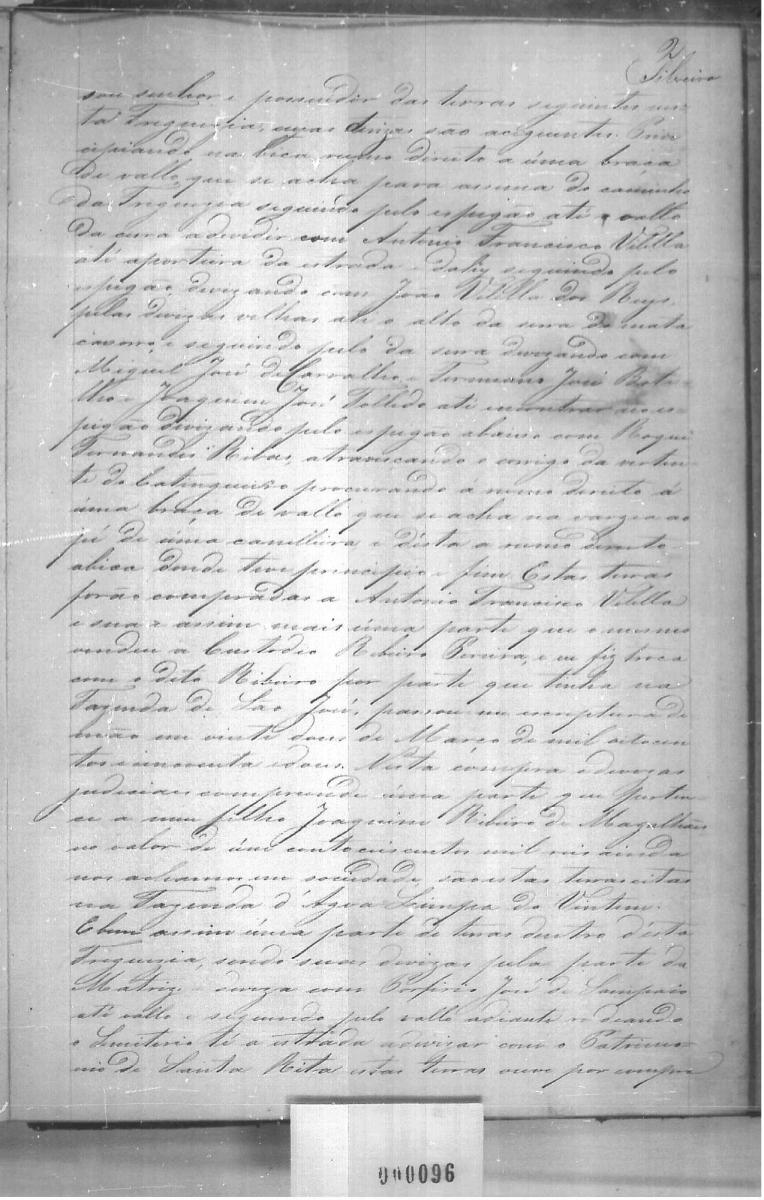 2
Ribeiro
sou senhor e possuidor das terras seguintes nes-
ta Freguezia, cuas divizas são aceguentes. Prin
cipiando na bica, rumo direito a úma braca
de vallo, que se acha para assima do caminho
da Freguezia seguindo pelo espigão até o vallo
da cava a dividir com Antonio Francisco Vilella
até aporteira da estrada e dahy seguindo pelo
espigão, divizando com João Vilella dos Reys,
pelas divizas velhas até o alto da serra do mata
cavorro, e seguindo pelo da serra divizando com
Miguel José de Carvalho, e Firmiano José Bote-
lho e Joaquim José Tolledo até encontrar no es-
pigão divizando pelo espigão abaixo com Roque
Fernandes Ribas, atravescando o corrigo da verten-
te do Catingueiro procurando á rumo direito á
úma braca de vallo que se acha na vargea ao
pé de úma canelleira e désta a rumo direito
abica donde teve principio e fim. Estas terras
forão compradas a Antonio Francisco Vilella
e sua e assim mais úma parte que o mesmo
vendeu a Custodio Ribeiro Pereira, e eu fiz troca
com o dito Ribeiro por parte que tinha na
Fazenda de São José, passou-me escriptura de
mão em vinte dous de Março de mil oitocen
tos e cincoenta e dous. Nésta compra e divizas
judiciais comprende úma parte que perten-
ce a meu filho Joaquim Ribeiro de Magalhães
no valor de úm conto mil reis ainda
nos achamos em sociedade, são estas terras citas
na Fazenda d'Agoa Limpa do Vintem.
E bem assim úma parte de terras dentro d'ésta
Freguezia, sendo suas divizas pela parte da
Matriz diviza com Porfirio José de Sampaio
até vallo e seguindo pelo vallo adiante rodeando
o Semiterio té a estrada a divizar com o Patrimo-
nio de Santa Rita estas terras ouve por compra
000096